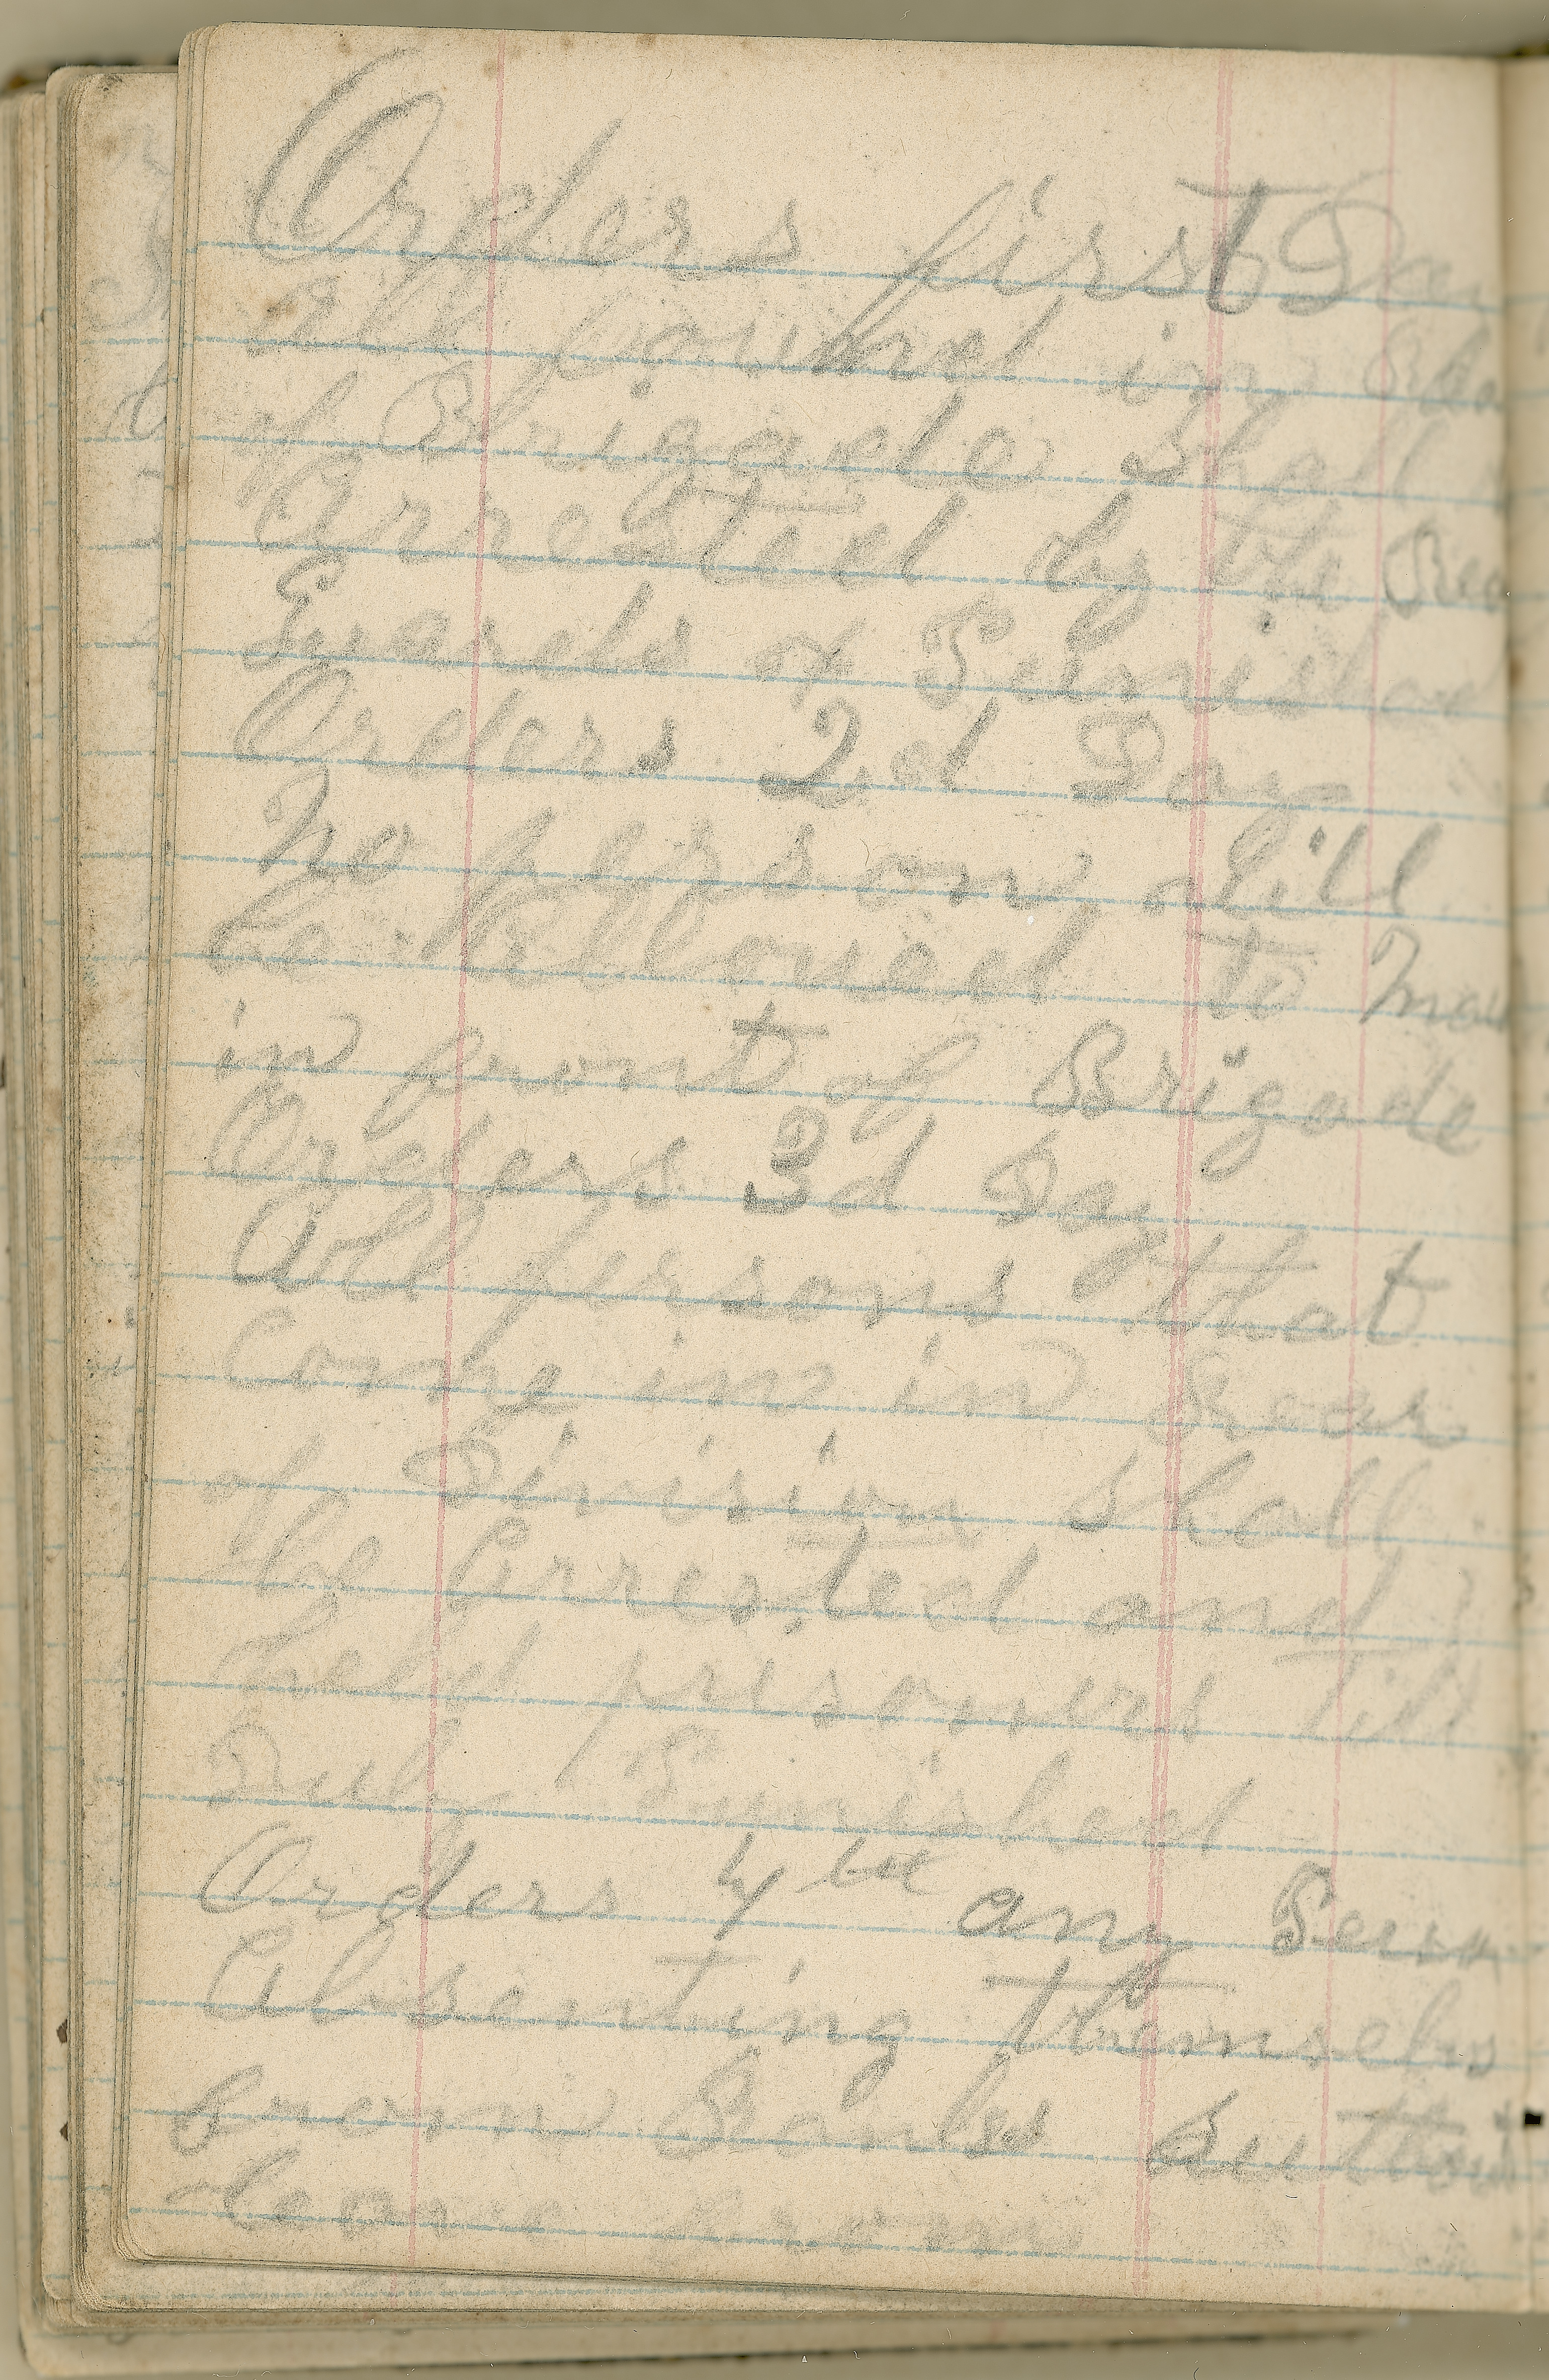 Orders first Day
All found in Rear
of Brigade Shall
Arrested by the Rear
Guards & Punished
Orders 2d Day
No person Will
be Allowed to
in front of Brigade
Orders 3d Day
All persons that
Come in in Rear
of Division Shall
be Arrested and
held prisoners till
Duly Punished
Orders 4th any
Absenting themselvs
from Ranks
leave from